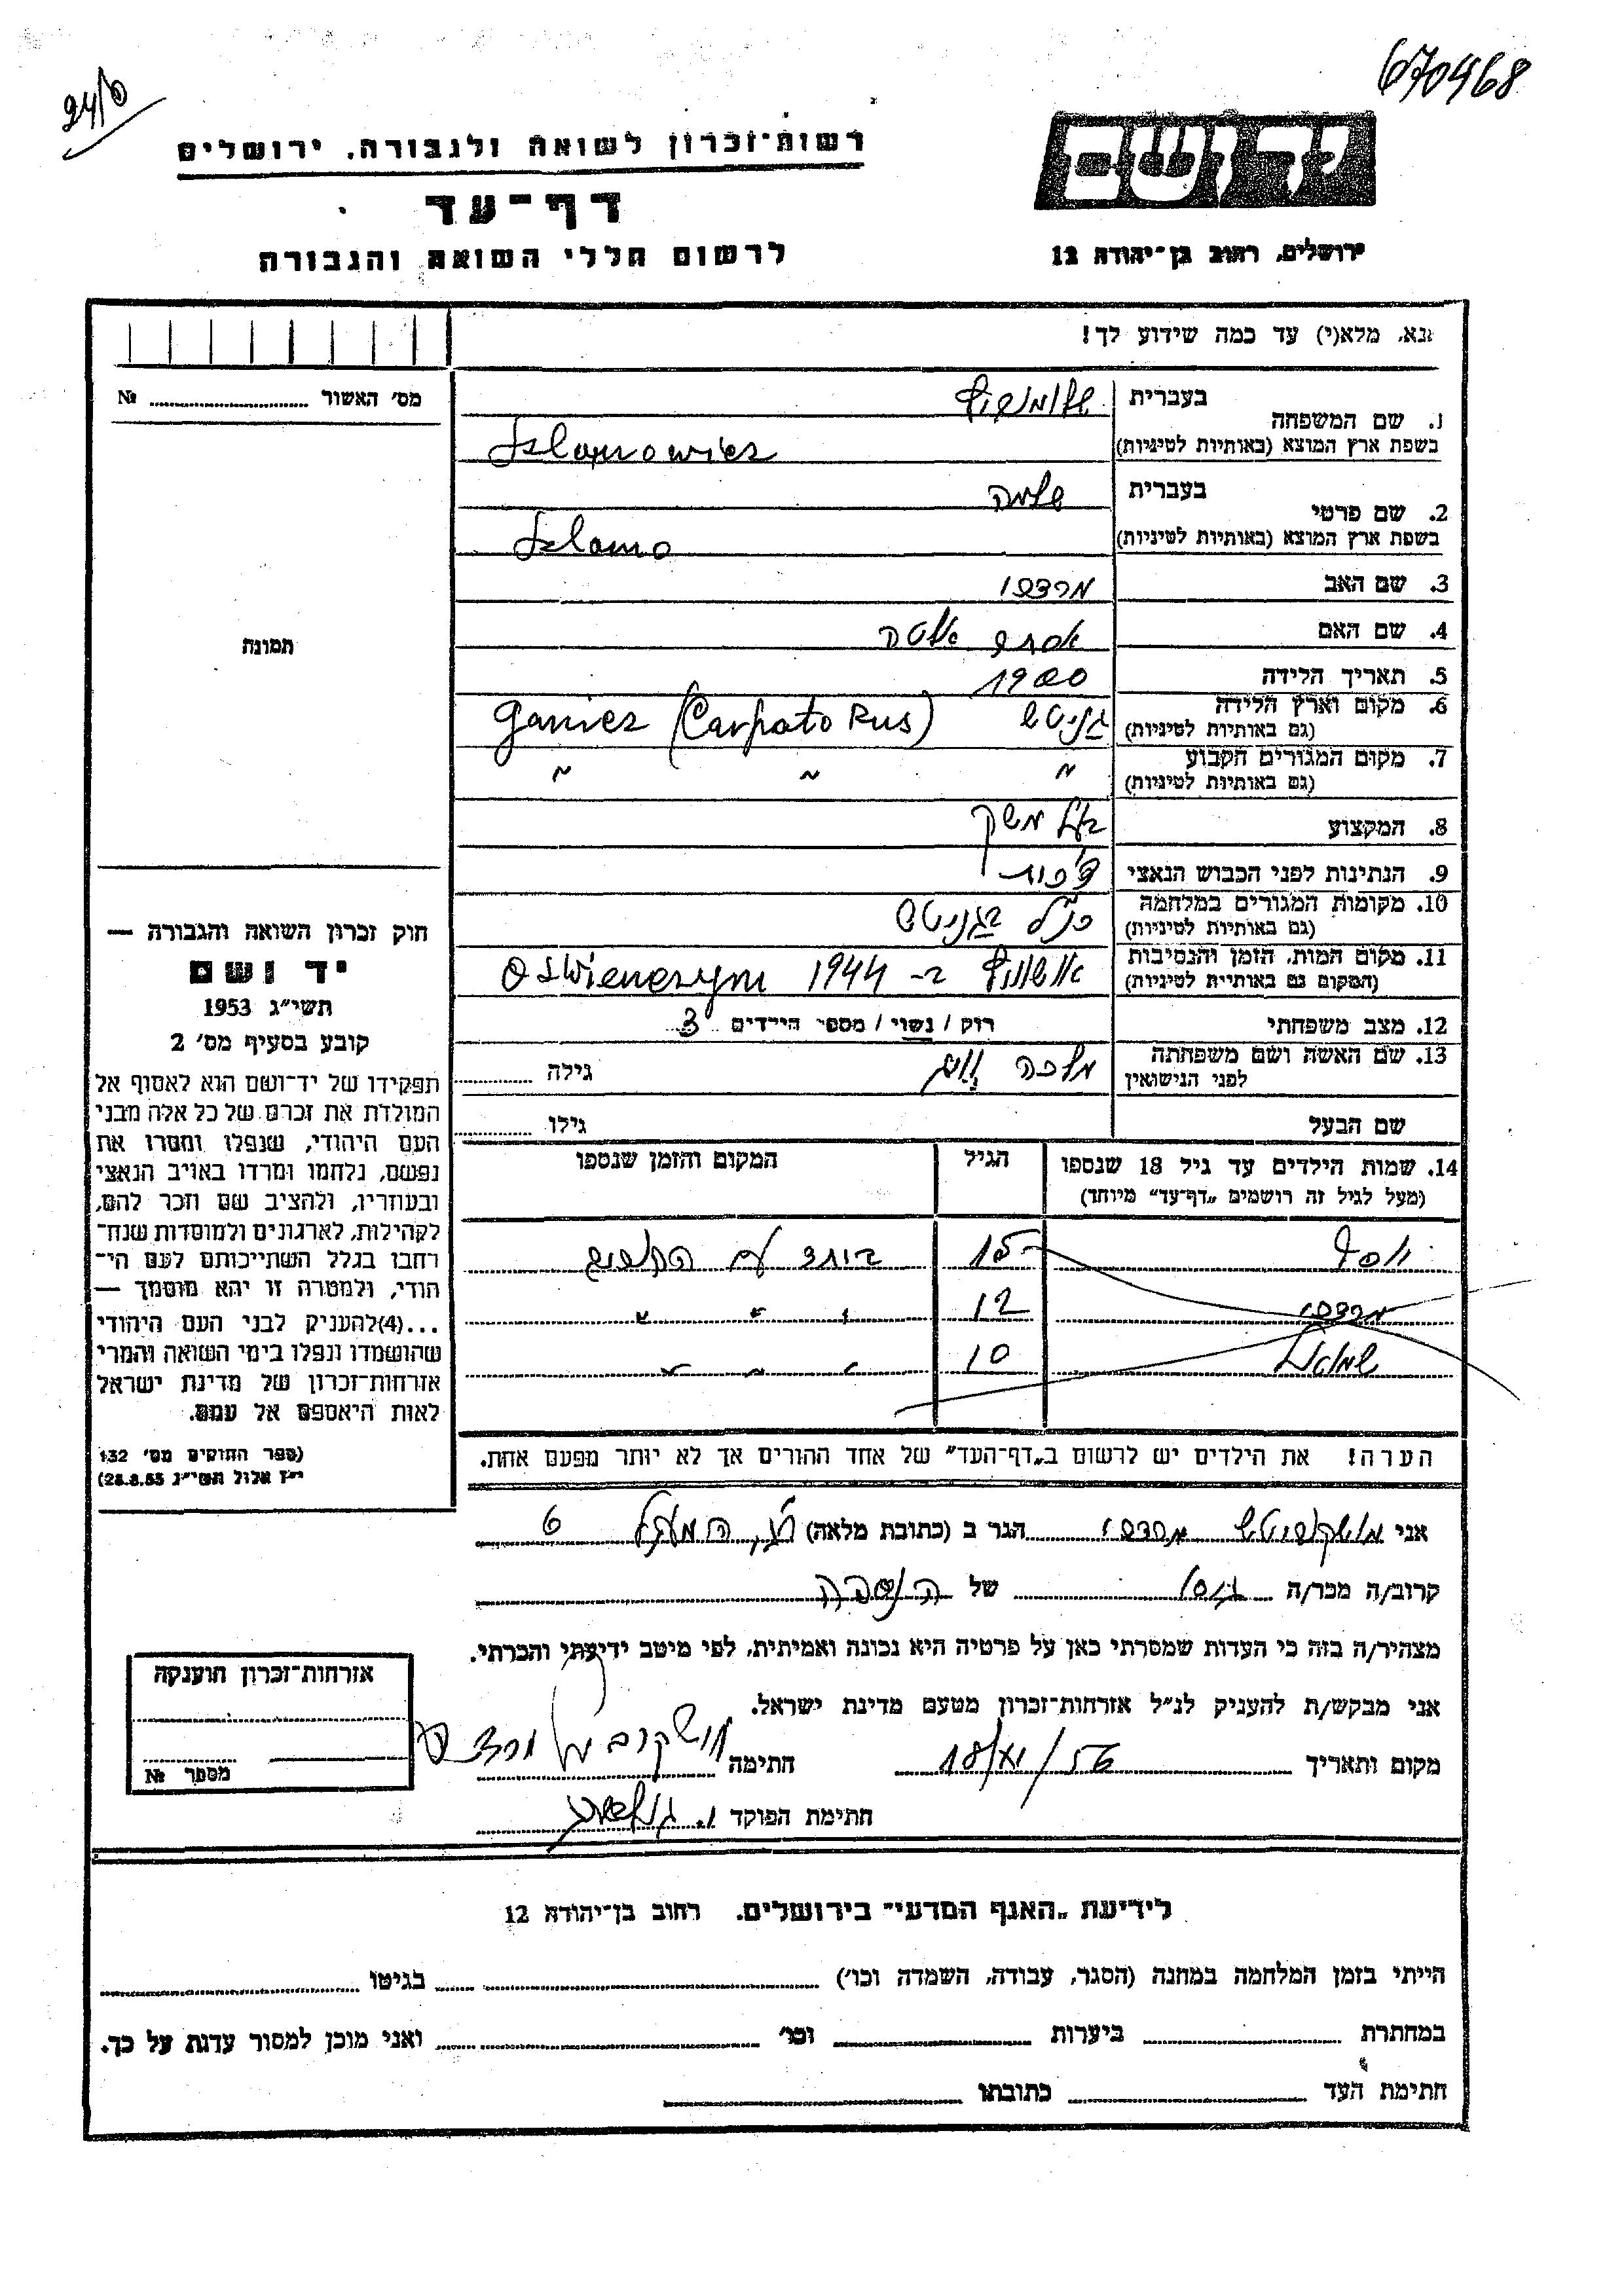 670468
24/6
רשות־זכרון לשואה ולגבורה, ירושלים
דף־עד
לרשום חללי השואה והגבורה
יד ושם
ירושלים, רחוב בן־יהודה 12
נא, מלא(י) עד כמה שידוע לך!
מס׳ האשור № ........
1. שם המשפחה בעברית
בשפת ארץ המוצא (באותיות לטיניות) Szlamowicz
2. שם פרטי בעברית שלמה
בשפת ארץ המוצא (באותיות לטיניות) Szlomo
3. שם האב מרדכי
4. שם האם
5. תאריך הלידה 1900
6. מקום וארץ הלידה (גם באותיות לטיניות) גניטש Ganicz (Carpato Rus)
7. מקום המגורים הקבוע (גם באותיות לטיניות) " " "
8. המקצוע בעל משק
9. הנתינות לפני הכבוש הנאצי
10. מקומות המגורים במלחמה (גם באותיות לטיניות) כנ״ל בגניטש
11. מקום המות, הזמן והנסיבות (המקום גם באותיות לטיניות) אושוויץ ב- 1944 Oswienczym
12. מצב משפחתי רווק / נשוי / מספר הילדים 3
13. שם האשה ושם משפחתה לפני הנישואין מלכה גילה ........
שם הבעל גילו ........
14. שמות הילדים עד גיל 18 שנספו הגיל המקום והזמן שנספו
(מעל לגיל זה רושמים „דף־עד” מיוחד)
יוסף 15 ביחד עם
מרדכי 12 " " "
שמואל 10 " " "
הערה! את הילדים יש לרשום ב„דף־העד” של אחד ההורים אך לא יותר מפעם אחת.
תמונה
חוק זכרון השואה והגבורה —
יד ושם
תשי״ג 1953
קובע בסעיף מס׳ 2
תפקידו של יד־ושם הוא לאסוף אל
המולדת את זכרם של כל אלה מבני
העם היהודי, שנפלו ומסרו את
נפשם, נלחמו ומרדו באויב הנאצי
ובעוזריו, ולהציב שם וזכר להם,
לקהילות, לארגונים ולמוסדות שנח־
רבו בגלל השתייכותם לעם הי־
הודי, ולמטרה זו יהא מוסמך —
...(4)להעניק לבני העם היהודי
שהושמדו ונפלו בימי השואה והמרי
אזרחות־זכרון של מדינת ישראל
לאות היאספם אל עמם.
(ספר החוקים מס׳ 132
י״ז אלול תשי״ג 28.8.53)
אני מושקוביטש מרדכי הגר ב (כתובת מלאה) 6
קרוב/ה מכר/ה גיסו של הנספה
מצהיר/ה בזה כי העדות שמסרתי כאן על פרטיה היא נכונה ואמיתית, לפי מיטב ידיעתי והכרתי.
אני מבקש/ת להעניק לנ״ל אזרחות־זכרון מטעם מדינת ישראל.
מקום ותאריך 18/VI/56 חתימה
חתימת הפוקד
אזרחות־זכרון הוענקה
מספר №
לידיעת „האגף המדעי” בירושלים, רחוב בן־יהודה 12
הייתי בזמן המלחמה במחנה (הסגר, עבודה, השמדה וכו׳) ........ בגיטו ........
במחתרת ........ ביערות ........ וכו׳ ........ ואני מוכן למסור עדות על כך.
חתימת העד ........ כתובתו ........